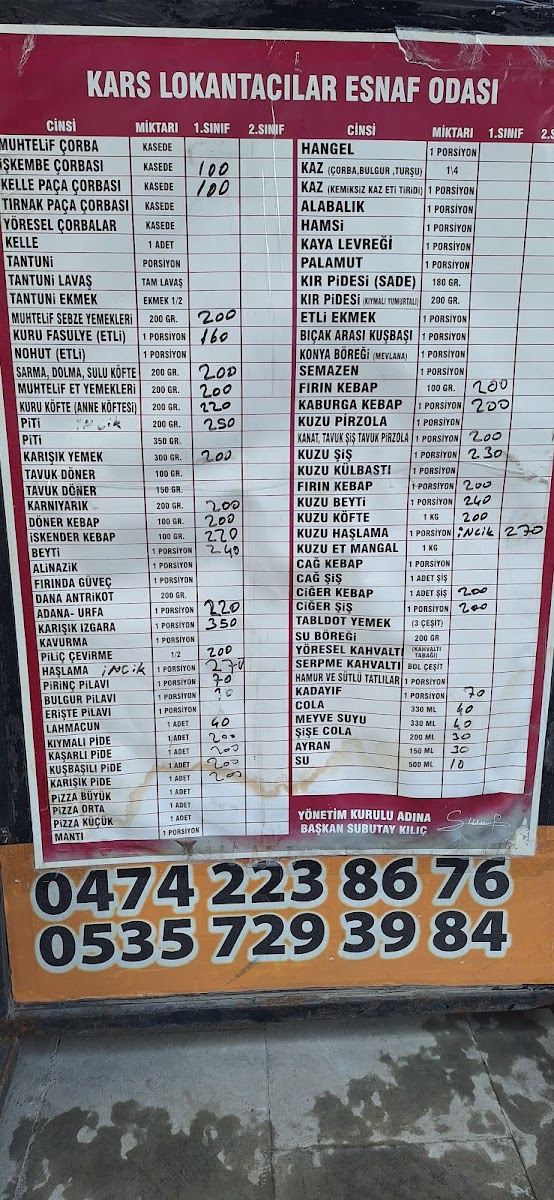 KARS LOKANTACILAR ESNAF ODASI
CİNSİ MİKTARI 1.SINIF 2.SINIF
MUHTELİF ÇORBA KASEDE
İŞKEMBE ÇORBASI KASEDE 100
KELLE PAÇA ÇORBASI KASEDE 100
TIRNAK PAÇA ÇORBASI KASEDE
YÖRESEL ÇORBALAR KASEDE
KELLE 1 ADET
TANTUNİ PORSİYON
TANTUNİ LAVAŞ TAM LAVAŞ
TANTUNİ EKMEK EKMEK 1/2
MUHTELİF SEBZE YEMEKLERİ 200 GR. 200
KURU FASULYE (ETLİ) 1 PORSİYON 160
NOHUT (ETLİ) 1 PORSİYON
SARMA, DOLMA, SULU KÖFTE 200 GR. 200
MUHTELİF ET YEMEKLERİ 200 GR. 200
KURU KÖFTE (ANNE KÖFTESİ) 200 GR. 220
PİTİ İNCİK 200 GR. 250
PİTİ 350 GR.
KARIŞIK YEMEK 300 GR. 200
TAVUK DÖNER 100 GR.
TAVUK DÖNER 150 GR.
KARNIYARIK 200 GR. 200
DÖNER KEBAP 100 GR. 200
İSKENDER KEBAP 100 GR. 220
BEYTİ 1 PORSİYON 240
ALİNAZİK 1 PORSİYON
FIRINDA GÜVEÇ 1 PORSİYON
DANA ANTRİKOT 200 GR.
ADANA- URFA 1 PORSİYON 220
KARIŞIK IZGARA 1 PORSİYON 350
KAVURMA 1 PORSİYON
PİLİÇ ÇEVİRME 1/2 200
HAŞLAMA İNCİK 1 PORSİYON 270
PİRİNÇ PİLAVI 1 PORSİYON 70
BULGUR PİLAVI 1 PORSİYON
ERİŞTE PİLAVI 1 PORSİYON
LAHMACUN 1 ADET 40
KIYMALI PİDE 1 ADET 200
KAŞARLI PİDE 1 ADET 200
KUŞBAŞILI PİDE 1 ADET 200
KARIŞIK PİDE 1 ADET 200
PİZZA BÜYÜK 1 ADET
PİZZA ORTA 1 ADET
PİZZA KÜÇÜK 1 ADET
MANTI 1 PORSİYON
CİNSİ MİKTARI 1.SINIF 2.SINIF
HANGEL 1 PORSİYON
KAZ (ÇORBA,BULGUR ,TURŞU) 1\4
KAZ (KEMİKSİZ KAZ ETİ TİRİDİ) 1 PORSİYON
ALABALIK 1 PORSİYON
HAMSİ 1 PORSİYON
KAYA LEVREĞİ 1 PORSİYON
PALAMUT 1 PORSİYON
KIR PİDESİ (SADE) 180 GR.
KIR PİDESİ (KIYMALI YUMURTALI) 200 GR.
ETLİ EKMEK 1 PORSİYON
BIÇAK ARASI KUŞBAŞI 1 PORSİYON
KONYA BÖREĞİ (MEVLANA) 1 PORSİYON
SEMAZEN 1 PORSİYON
FIRIN KEBAP 100 GR. 200
KABURGA KEBAP 1 PORSİYON 200
KUZU PİRZOLA 1 PORSİYON
KANAT, TAVUK ŞİŞ TAVUK PİRZOLA 1 PORSİYON 200
KUZU ŞİŞ 1 PORSİYON 230
KUZU KÜLBASTI 1 PORSİYON
FIRIN KEBAP 1 PORSİYON 200
KUZU BEYTİ 1 PORSİYON 240
KUZU KÖFTE 1 KG 200
KUZU HAŞLAMA 1 PORSİYON İNCİK 270
KUZU ET MANGAL 1 KG
CAĞ KEBAP 1 PORSİYON
CAĞ ŞİŞ 1 ADET ŞİŞ
CİĞER KEBAP 1 ADET ŞİŞ 200
CİĞER ŞİŞ 1 PORSİYON 200
TABLDOT YEMEK (3 ÇEŞİT)
SU BÖREĞİ 200 GR
YÖRESEL KAHVALTI (KAHVALTI TABAĞI)
SERPME KAHVALTI BOL ÇEŞİT
HAMUR VE SÜTLÜ TATLILAR 1 PORSİYON
KADAYIF 1 PORSİYON 70
COLA 330 ML 40
MEYVE SUYU 330 ML 40
ŞİŞE COLA 200 ML 30
AYRAN 150 ML 30
SU 500 ML 10
YÖNETİM KURULU ADINA
BAŞKAN SUBUTAY KILIÇ
0474 223 86 76
0535 729 39 84